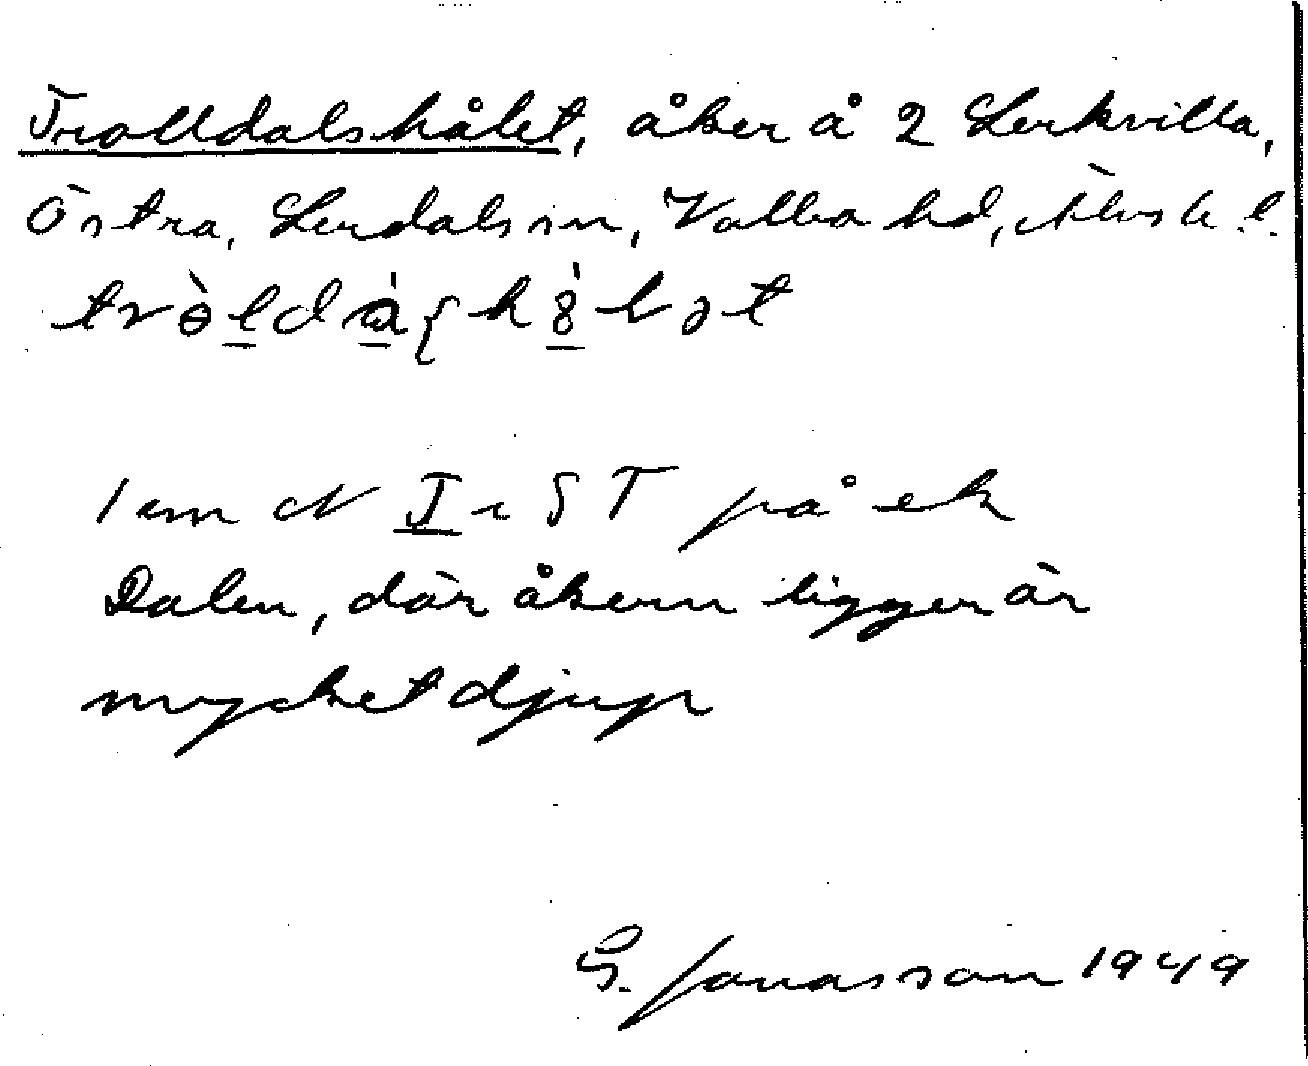 Trolldalshålet, åker å 2 Lerkvilla,
Östra, Lerdals sn, Valbo hd, Älvsb. l.
tròldàʃhȣ̀lət
1 cm N I i ST på ek
Dalen, där åkern ligger är
mycket djup
G. Jonasson 1949